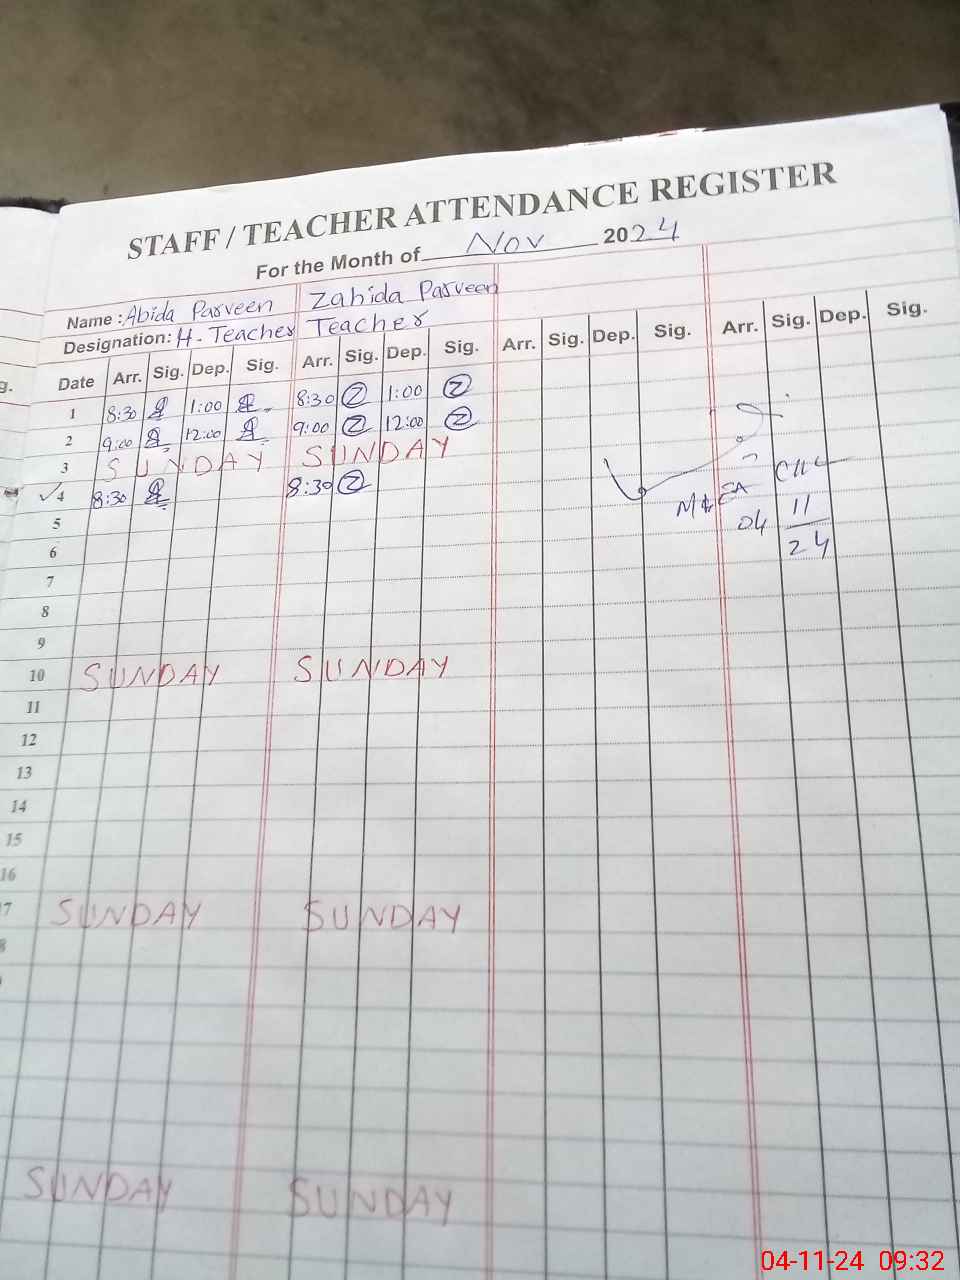 STAFF / TEACHER ATTENDANCE REGISTER
For the Month of Nov 2024
Name : Abida Parveen Zahida Parveen
Designation: H. Teacher Teacher
g.
Date Arr. Sig. Dep. Sig. Arr. Sig. Dep. Sig. Arr. Sig. Dep. Sig. Arr. Sig. Dep. Sig.
1 8:30 1:00 8:30 Z 1:00 Z
2 9:00 12:00 9:00 Z 12:00 Z
3 SUNDAY SUNDAY
4 8:30 8:30 Z
04 11
24
5
6
7
8
9
10 SUNDAY SUNDAY
11
12
13
14
15
16
7 SUNDAY SUNDAY
8
SUNDAY SUNDAY
04-11-24 09:32